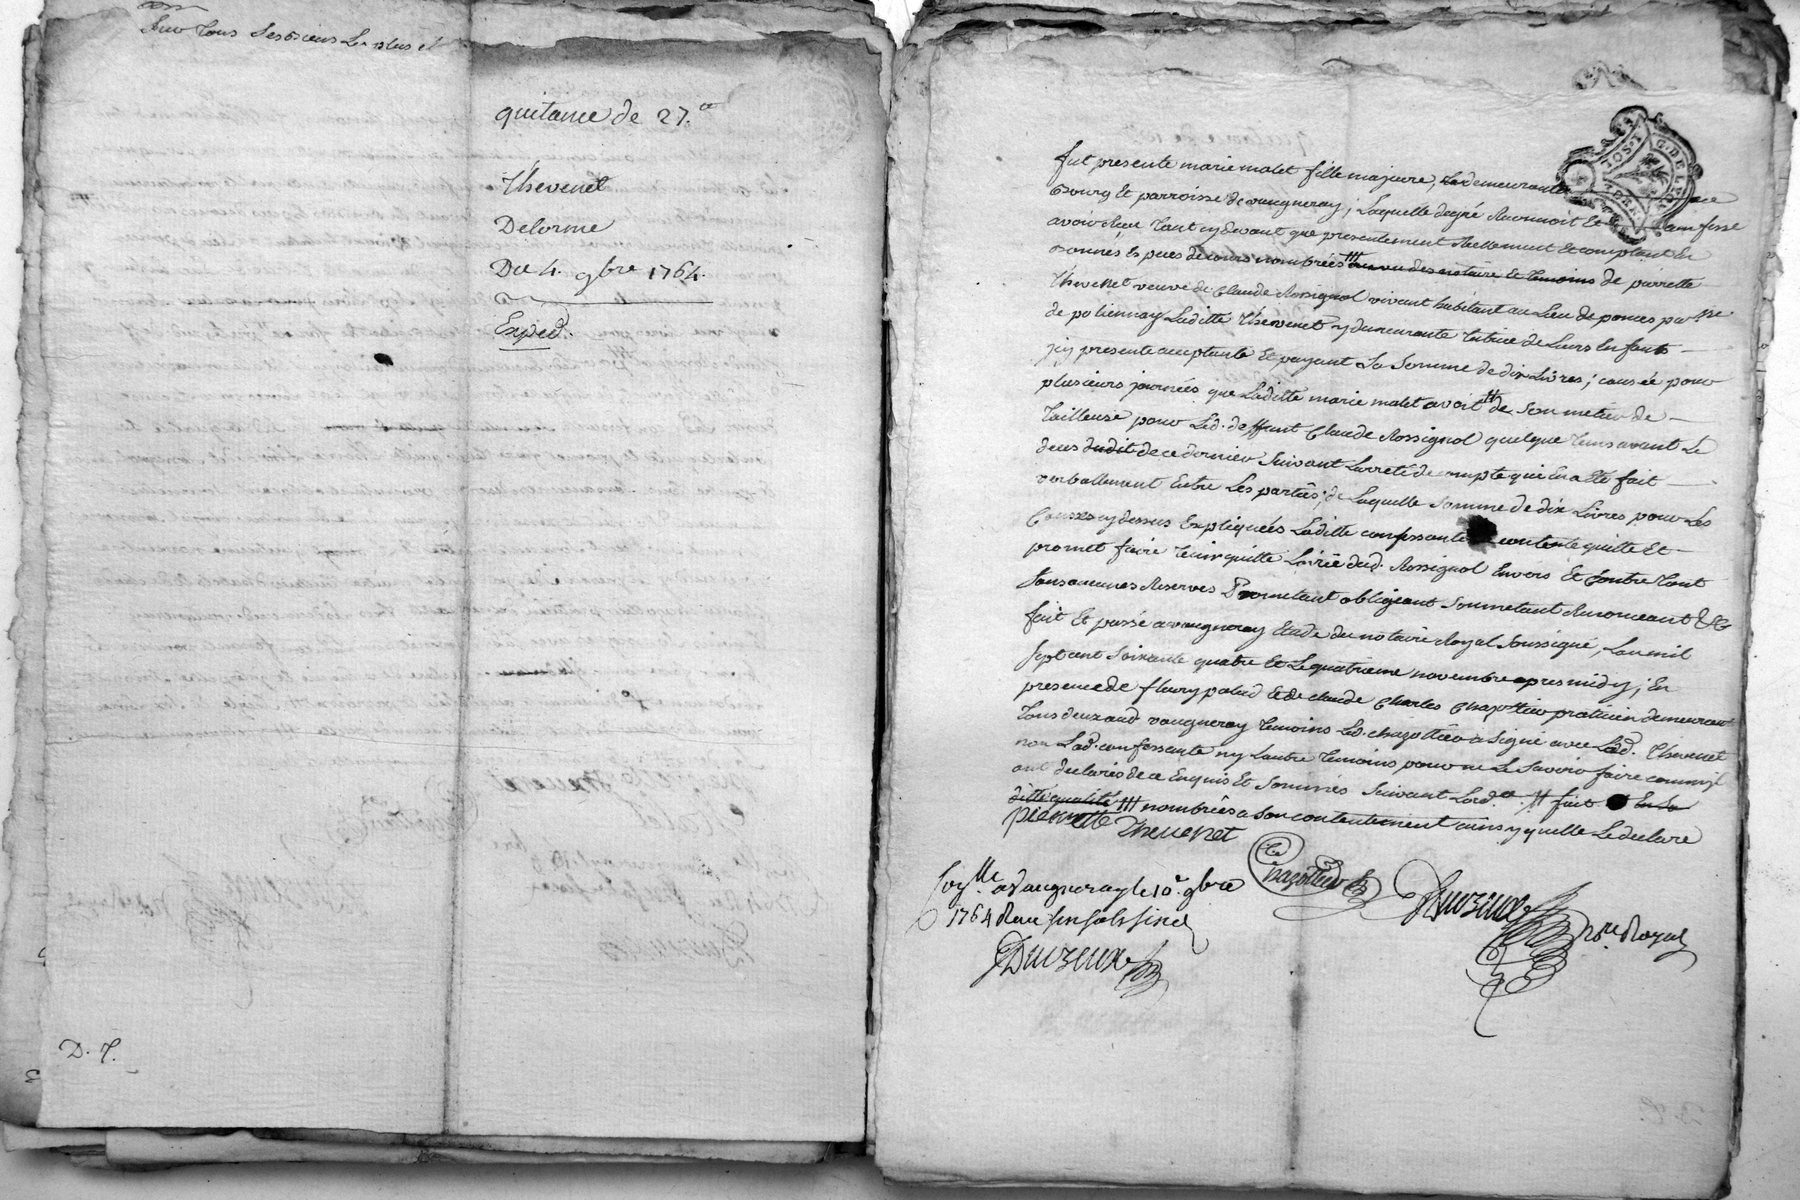 Sur tous ses biens Les plus et
quitance de 27.tt
Thevenet
Delorme
Du 4. 9bre 1764.
Exped.
D. T.
fut presente marie malet fille majeure, Lad. demeurante
Bourg Et parroisse de vaugneray; Laquelle de gré Reconnoit Et confesse
avoir Reçu tant cy devant que presentement Reellement Et comptant En
bonnes Especes de cours nombrées au vu des notaire Et temoins de pierrette
Thevenet veuve de Claude Rossignol vivant habitant au Lieu de ponces par.sse
de poliennay Laditte Thevenet y demeurante tutrice de Leurs Enfants
icy presente acceptante Et payant La Somme de dix Livres; causée pour
plusieurs journées que Laditte marie malet avoit de Son metier de
Tailleuse pour Led. deffunt Claude Rossignol quelque tems avant Le
deces dudit de ce dernier Suivant Larreté de compte qui En a Eté fait
verballement Entre Les parties; de Laquelle Somme de dix Livres pour Les
Causes cy dessus Expliquées Laditte confessante contente quitte Et
promet faire tenir quitte L'oirie dud. Rossignol Envers Et Contre tout
Sans aucunes Reserves Prometant obligeant Soumetant Renonceant &c
fait Et passé a vaugneray Etude du notaire Royal Soussigné, Lan mil
Sept cent Soixante quatre Et Le quatrieme novembre apres midy; En
presence de fleury palud Et de claude Charles Chazottier praticien demeurant
Tous deux aud. vaugneray temoins Led. chazottier a Signé avec Lad. Thevenet
non Lad. confessante ny Lautre temoins pour ne Le Savoir faire comme il
ont declarés de ce Enquis Et Sommés Suivant Lord.ce. // fait En Sa
ditte qualité /// nombrées a Son contentement ainsy quelle Le declare
pierrette Thevenet
Chazottier
Duvzeux
No.re Royal
a Vaugneray le 10e. 9bre
1764 Reçu
Duvzeux